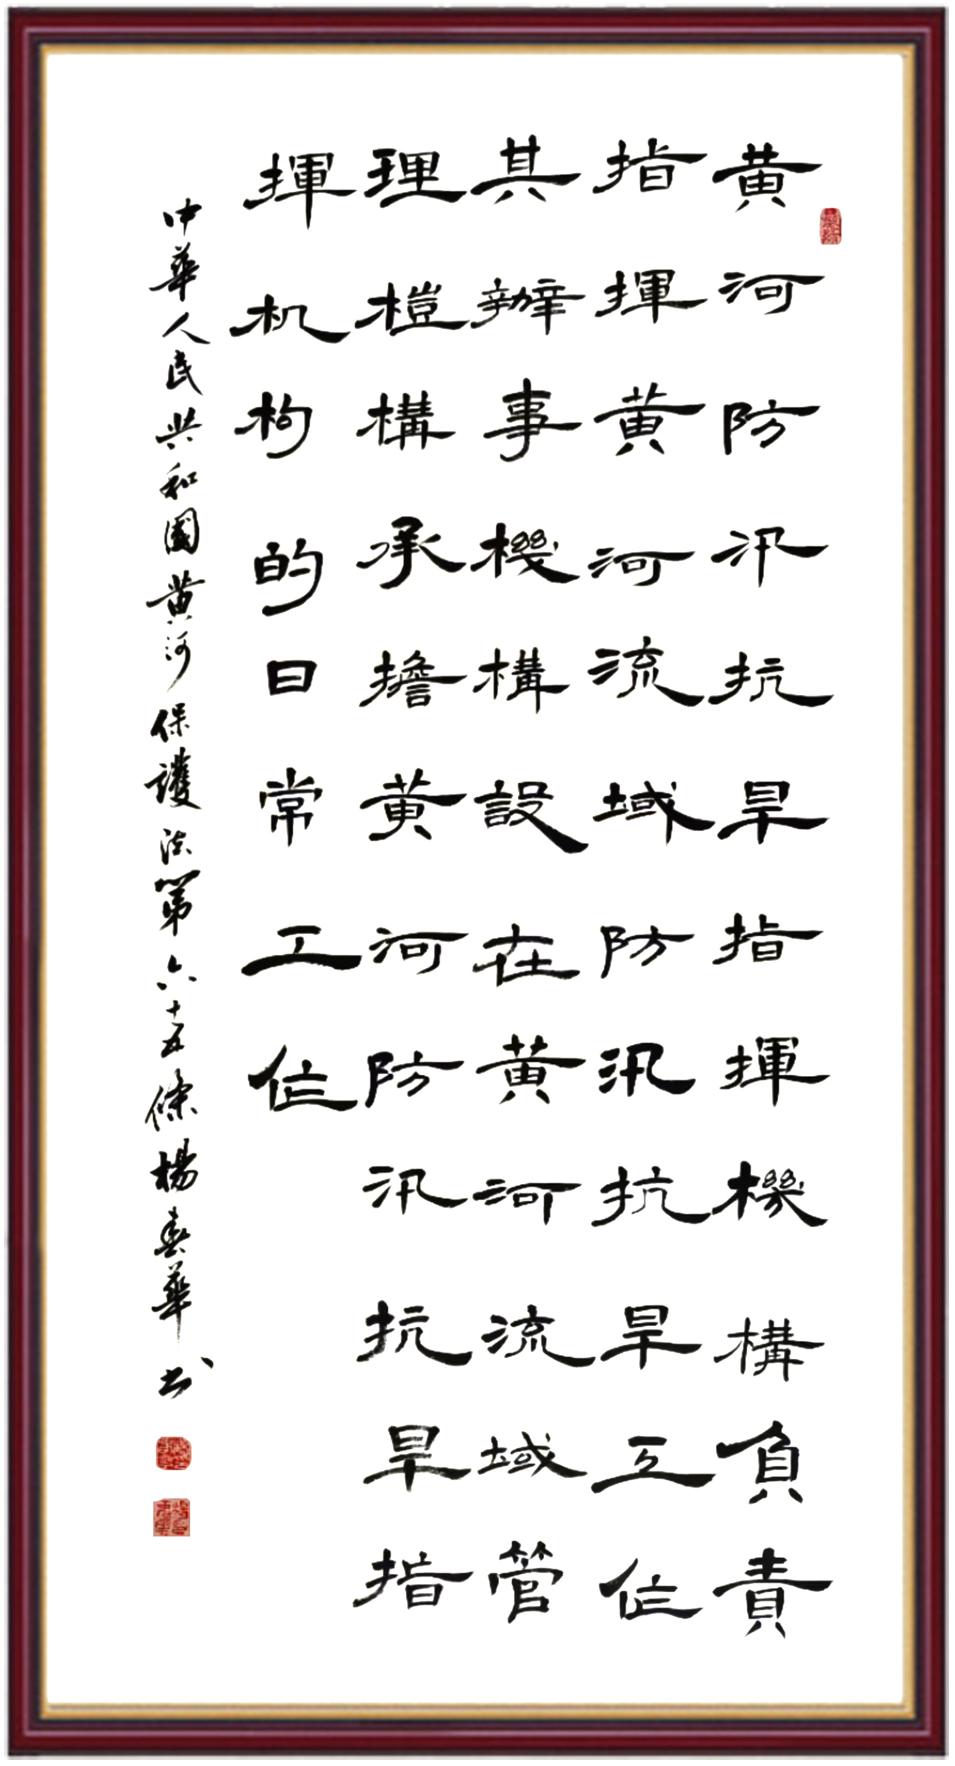 黄河防汛抗旱指揮機構負責
指揮黄河流域防汛抗旱工作
其辦事機構設在黄河流域管
理榿構承擔黄河防汛抗旱指
揮机枸的日常工作
中華人民共和國黄河保護法第六十五條楊春華书